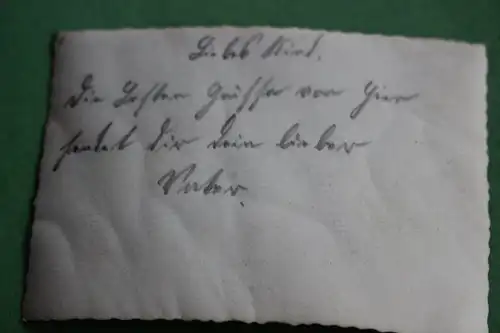 Liebes Kind.
Die besten Grüsse von hier
sendet dir dein lieber
Vater.